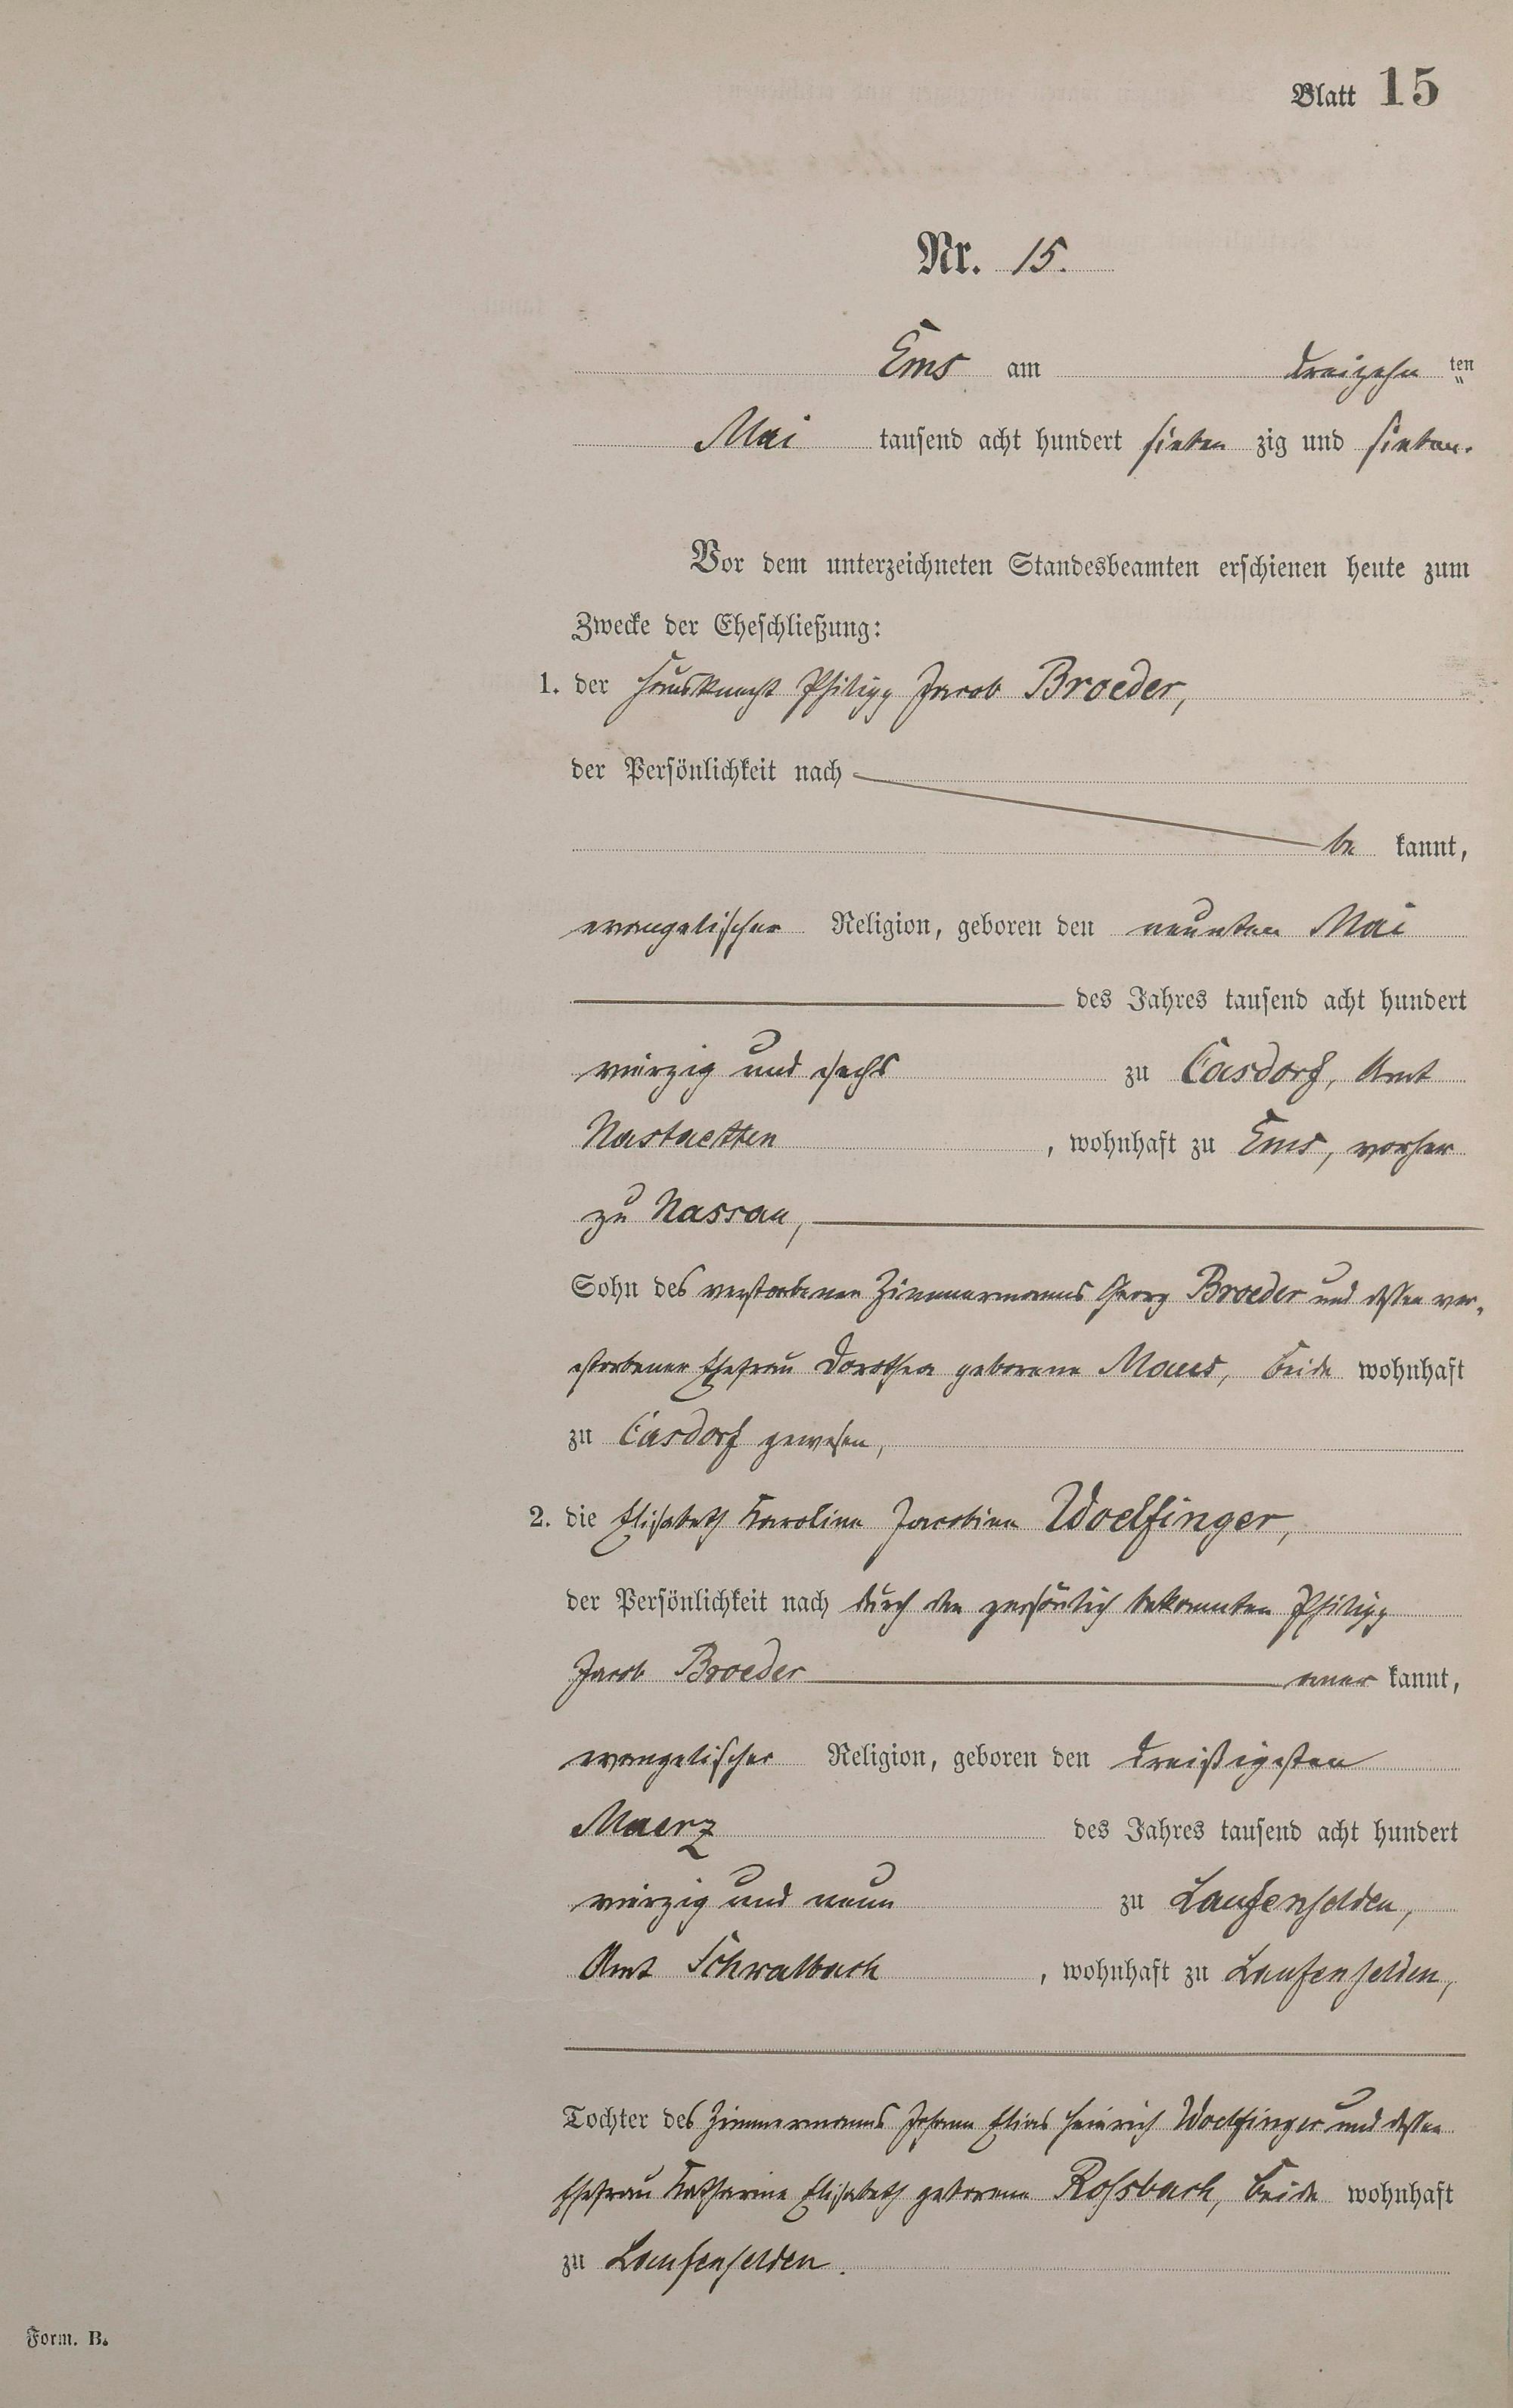 Blatt 15
Nr. 15.
Ems am dreizehn ten
Mai tausend acht hundert sieben zig und sieben.
Vor dem unterzeichneten Standesbeamten erschienen heute zum
Zwecke der Eheschließung:
1. der Hausknecht Philipp Jacob Broeder,
der Persönlichkeit nach
be kannt,
evangelischer Religion, geboren den neunten Mai
des Jahres tausend acht hundert
vierzig und sechs zu Casdorf, Amt
Nastaetten, wohnhaft zu Ems, vorher
zu Nassau,
Sohn des verstorbenen Zimmermanns Georg Broeder und dessen ver-
storbener Ehefrau Dorothea geborene Maus, beide wohnhaft
zu Casdorf gewesen,
2. die Elisabeth Karoline Jacobine Woelfinger,
der Persönlichkeit nach durch den persönlich bekannten Philipp
Jacob Broeder aner kannt,
evangelischer Religion, geboren den dreißigsten
Maerz des Jahres tausend acht hundert
vierzig und neun zu Laufenselden,
Amt Schwalbach, wohnhaft zu Laufenselden,
Tochter des Zimmermanns Johann Elias Heinrich Woelfinger und dessen
Ehefrau Katharine Elisabeth geborene Rossbach, beide wohnhaft
zu Laufenselden.
Form. B.